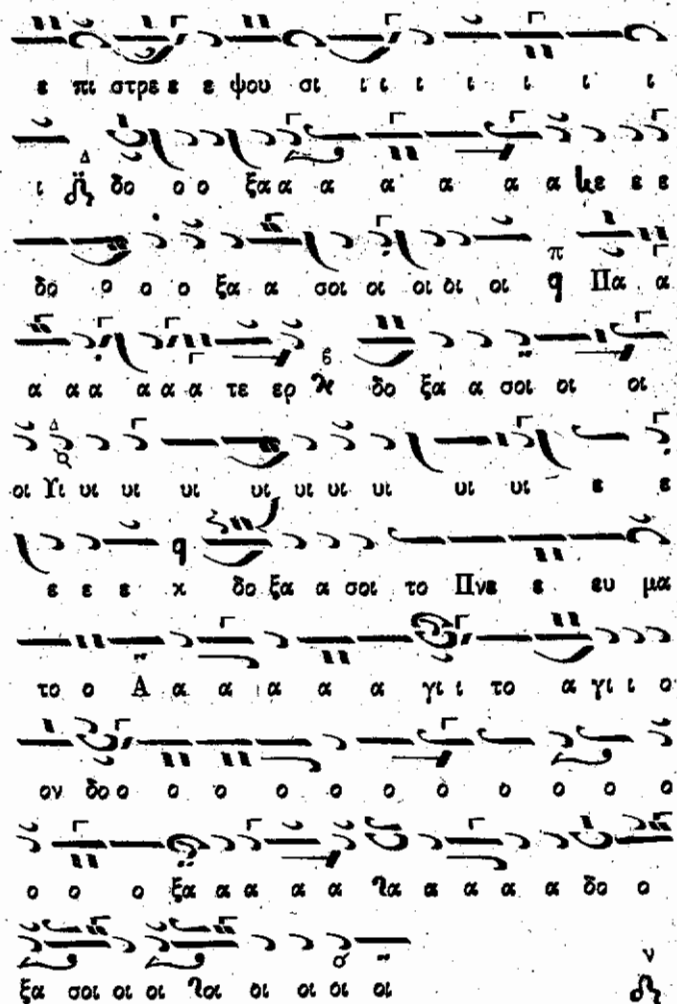 ε πι στρε ε ε ψου σι ι ι ι ι ι ι ι
ι Δ δο ο ο ξα α α α α α α α κε ε ε
δο ο ο ο ξα α σοι οι οι οι οι π q Πα α
α α α α α α τε ερ β δο ξα α σοι οι οι
οι Δ Υι υι υι υι υι υι υι υι υι υι ε ε
ε ε ε κ q δο ξα α σοι το Πνε ε ευ μα
το ο Α α α α α α γι ι το α γι ι ο
ον δο ο ο ο ο ο ο ο ο ο ο ο
ο ο ο ξα α α α α λα α α α α δο ο
ξα σοι οι οι λοι οι οι οι οι ν